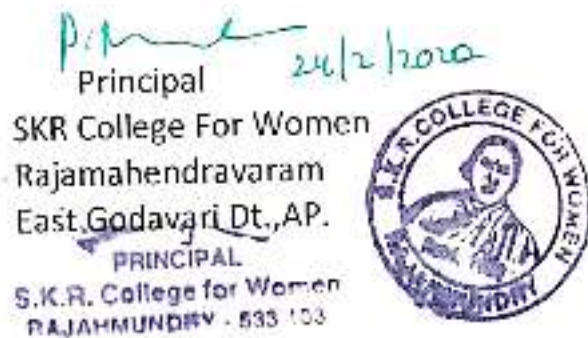 24/2/2020
Principal
SKR College For Women
Rajamahendravaram
East Godavari Dt.,AP.
PRINCIPAL
S.K.R. College for Women
RAJAHMUNDRY - 533 103
S.K.R. COLLEGE FOR WOMEN
RAJAHMUNDRY